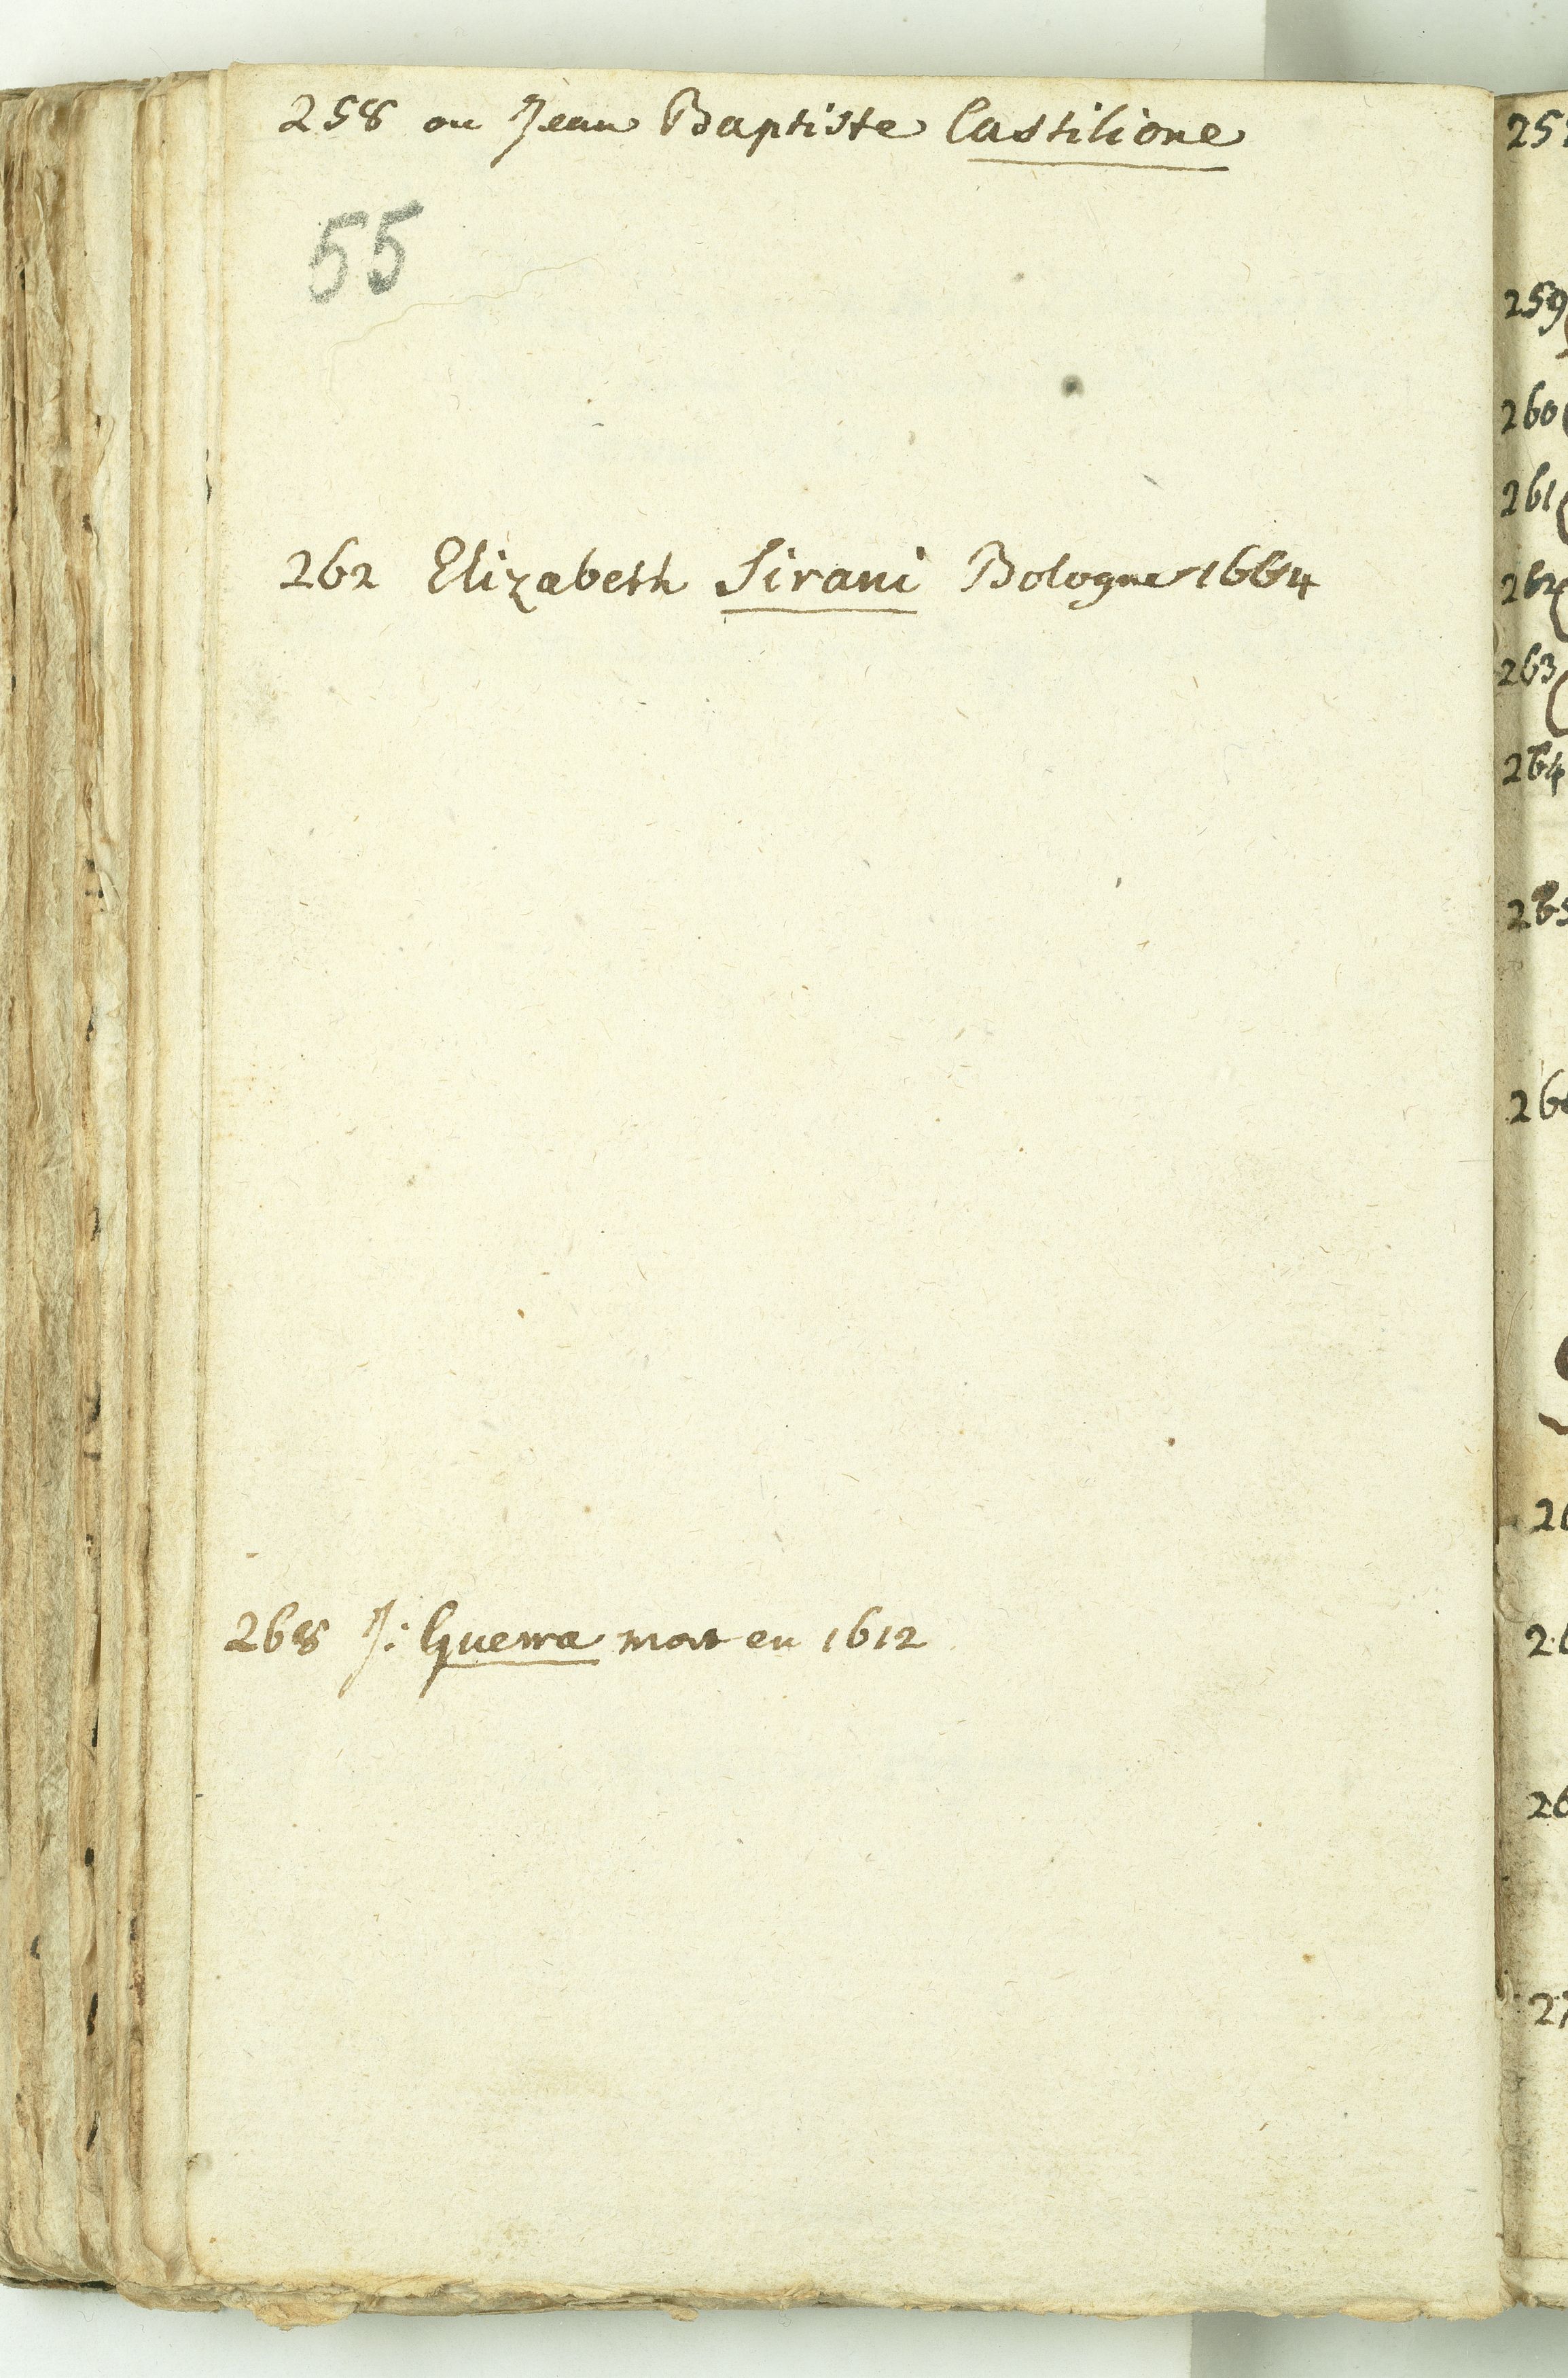 258 ou Jean Baptiste Castilione
55
262 Elizabeth Sirani Bologne 1664
268 J: Guerra mort en 1612
259
260
261
262
263
264